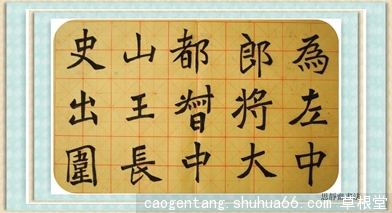 為左中
郎将大
都督中
山王長
史出圍
caogentang.shuhua66.com 草根堂